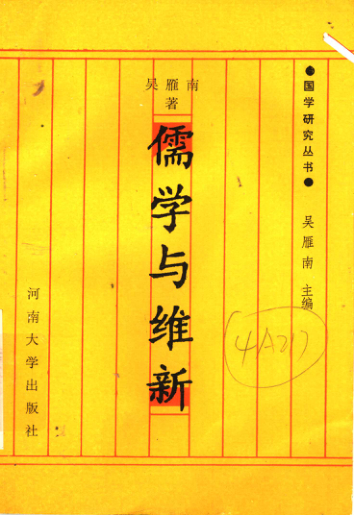 ●国学研究丛书●
吴雁南 主编
吴雁南
著
儒学与维新
河南大学出版社